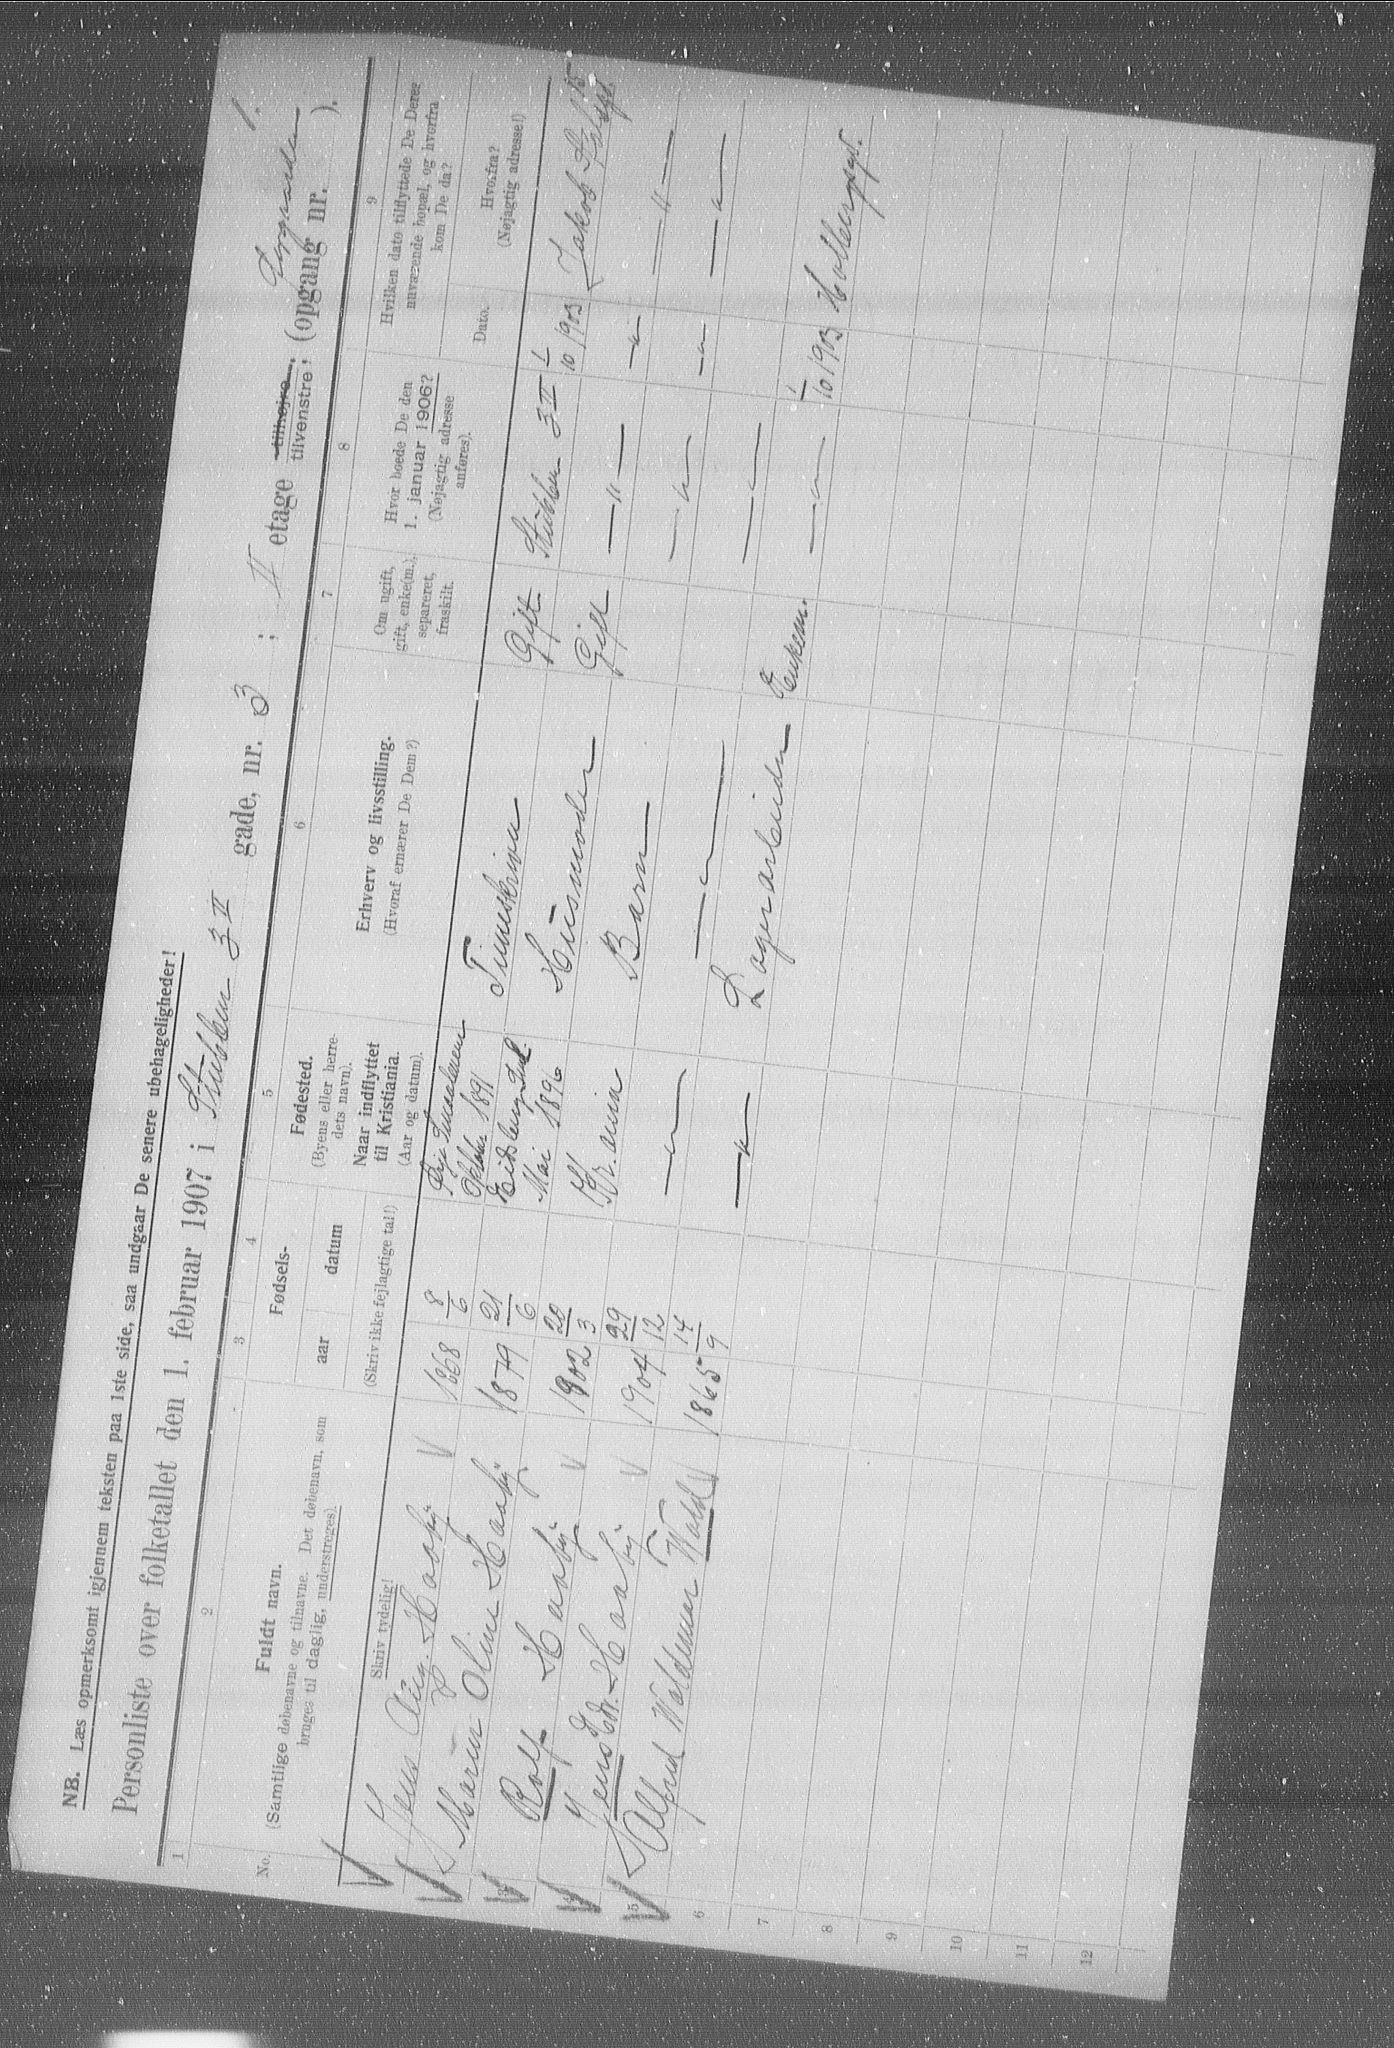 NB. Læs opmerksomt igjennem teksten paa 1ste side, saa undgaar De senere ubehageligheder!
Personliste over folketallet den 1. februar 1907 i Stubben 3 II
gade, nr. 3 ; II etage tilhøjre, tilvenstre; (opgang nr. ).
1 2 3 4 5 6 7 8 9
No.
Fuldt navn.
(Samtlige døbenavne og tilnavne. Det døbenavn, som
bruges til daglig, understreges).
Skriv tydelig!
Fødsels-
aar datum
(Skriv ikke fejlagtige tal!)
Fødested.
(Byens eller herre-
dets navn).
Naar indflyttet
til Kristiania.
(Aar og datum).
Erhverv og livsstilling.
(Hvoraf ernærer De Dem?)
Om ugift,
gift, enke(m.),
separeret,
fraskilt.
Hvor boede De den
1. januar 1906?
(Nøjagtig adresse
anføres).
Hvilken dato tilflyttede De Deres
nuværende bopæl, og hvorfra
kom De da?
Dato.
Hvorfra?
(Nøjagtig adresse!)
Jens Aug. Haaby 1868 8/6 Oktober 1891 Gift Stubben 3 II 1/10 1903 Jakob
Maren Oline Haaby 1879 21/6 Eidsberg Mai 1896 Husmoder Gift — " — — " — — " —
Rolf Haaby 1902 20/3 Kr.ania Barn — " — — " — — " —
Jens Edv. Haaby 1904 29/12 — " — — " — — " —
5 Alfred Waldemar Wold 1865 14/9 — " — Lagerarbeider Enkem. — " — 1/10 1903 Holbergsgt.
6
7
8
9
10
11
12